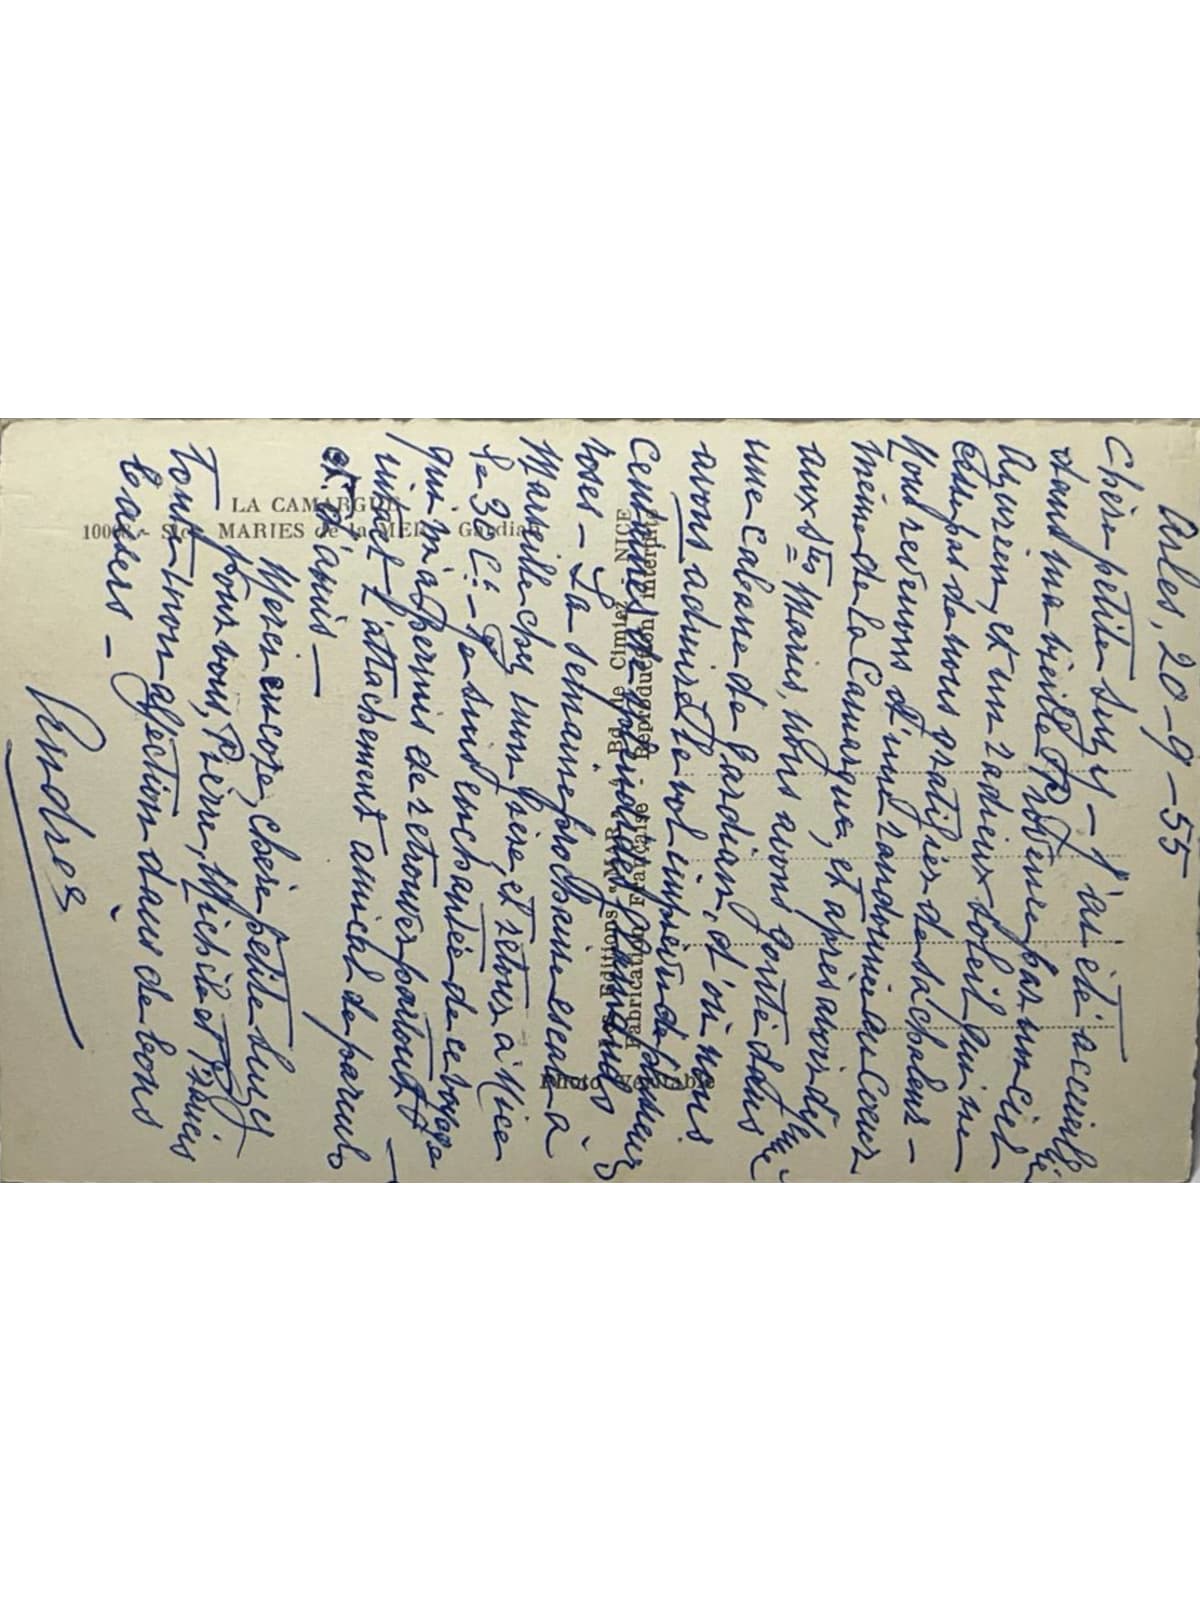 Arles, 20-9-55
Chère petite Suzy - J'ai été accueillie
dans ma vieille Provence par un ciel
Azuréen, et un radieux soleil qui ne
cesse pas de nous gratifier de sa chaleur -
Nous revenons d'une randonnée au Coeur
même de la Camargue, et après avoir déjeuné
aux Stes Maries, nous avons goûté dans
une cabane de Gardian, d'où nous
avons admiré le vol imprévu de plusieurs
Centaines de splendides flamands
roses - La semaine prochaine escale à
Marseille chez mon frère, et retour à Nice
le 3 Ct - Je suis enchantée de ce voyage
qui m'a permis de retrouver partout
intact l'attachement amical de parents
et d'amis -
Merci encore, chère petite Suzy
Pour vous, Pierre, Michèle et Francis
Toute mon affection dans de bons
baisers -
Andrée
LA CAMARGUE
10008 - Stes MARIES de la MER - Gardian
Les Editions "MAR", 4 Bd de Cimiez - NICE
Fabrication Française - Reproduction interdite
Photo Véritable